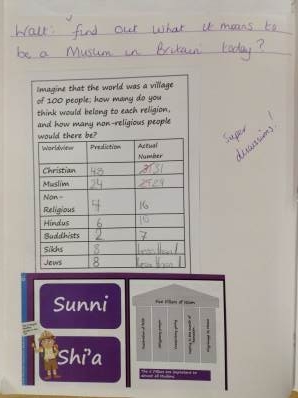 Walt: find out what it means to
be a Muslim in Britain today?
Imagine that the world was a village
of 100 people; how many do you
think would belong to each religion,
and how many non-religious people
would there be?
Worldview Prediction Actual
Number
Christian 31
Muslim 24
Non-
Religious 4 16
Hindus 6 15
Buddhists 2 7
Sikhs
Jews 8
Super
discussions!
Sunni
Shi'a
Five Pillars of Islam